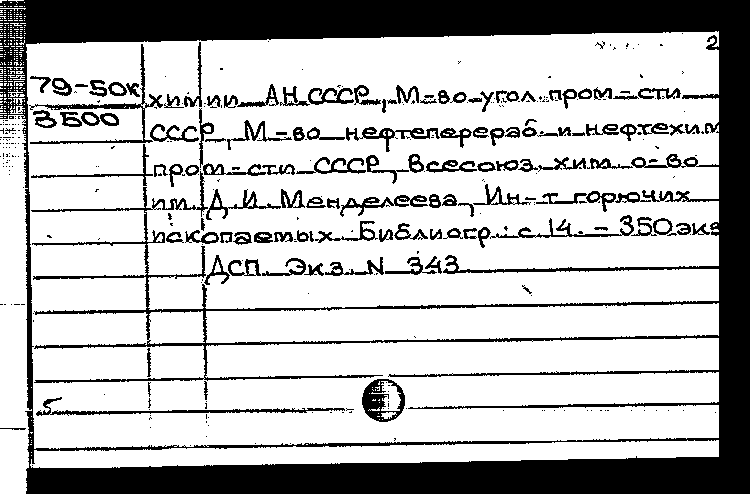 2
79-50к
3500
химии АН СССР, М-во угол. пром-сти
СССР, М-во нефтеперераб. и нефтехим.
пром-сти СССР, Всесоюз. хим. о-во
им. Д.И. Менделеева, Ин-т горючих
ископаемых. Библиогр.: с. 14. - 350 экз
ДСП. Экз. N 343
5